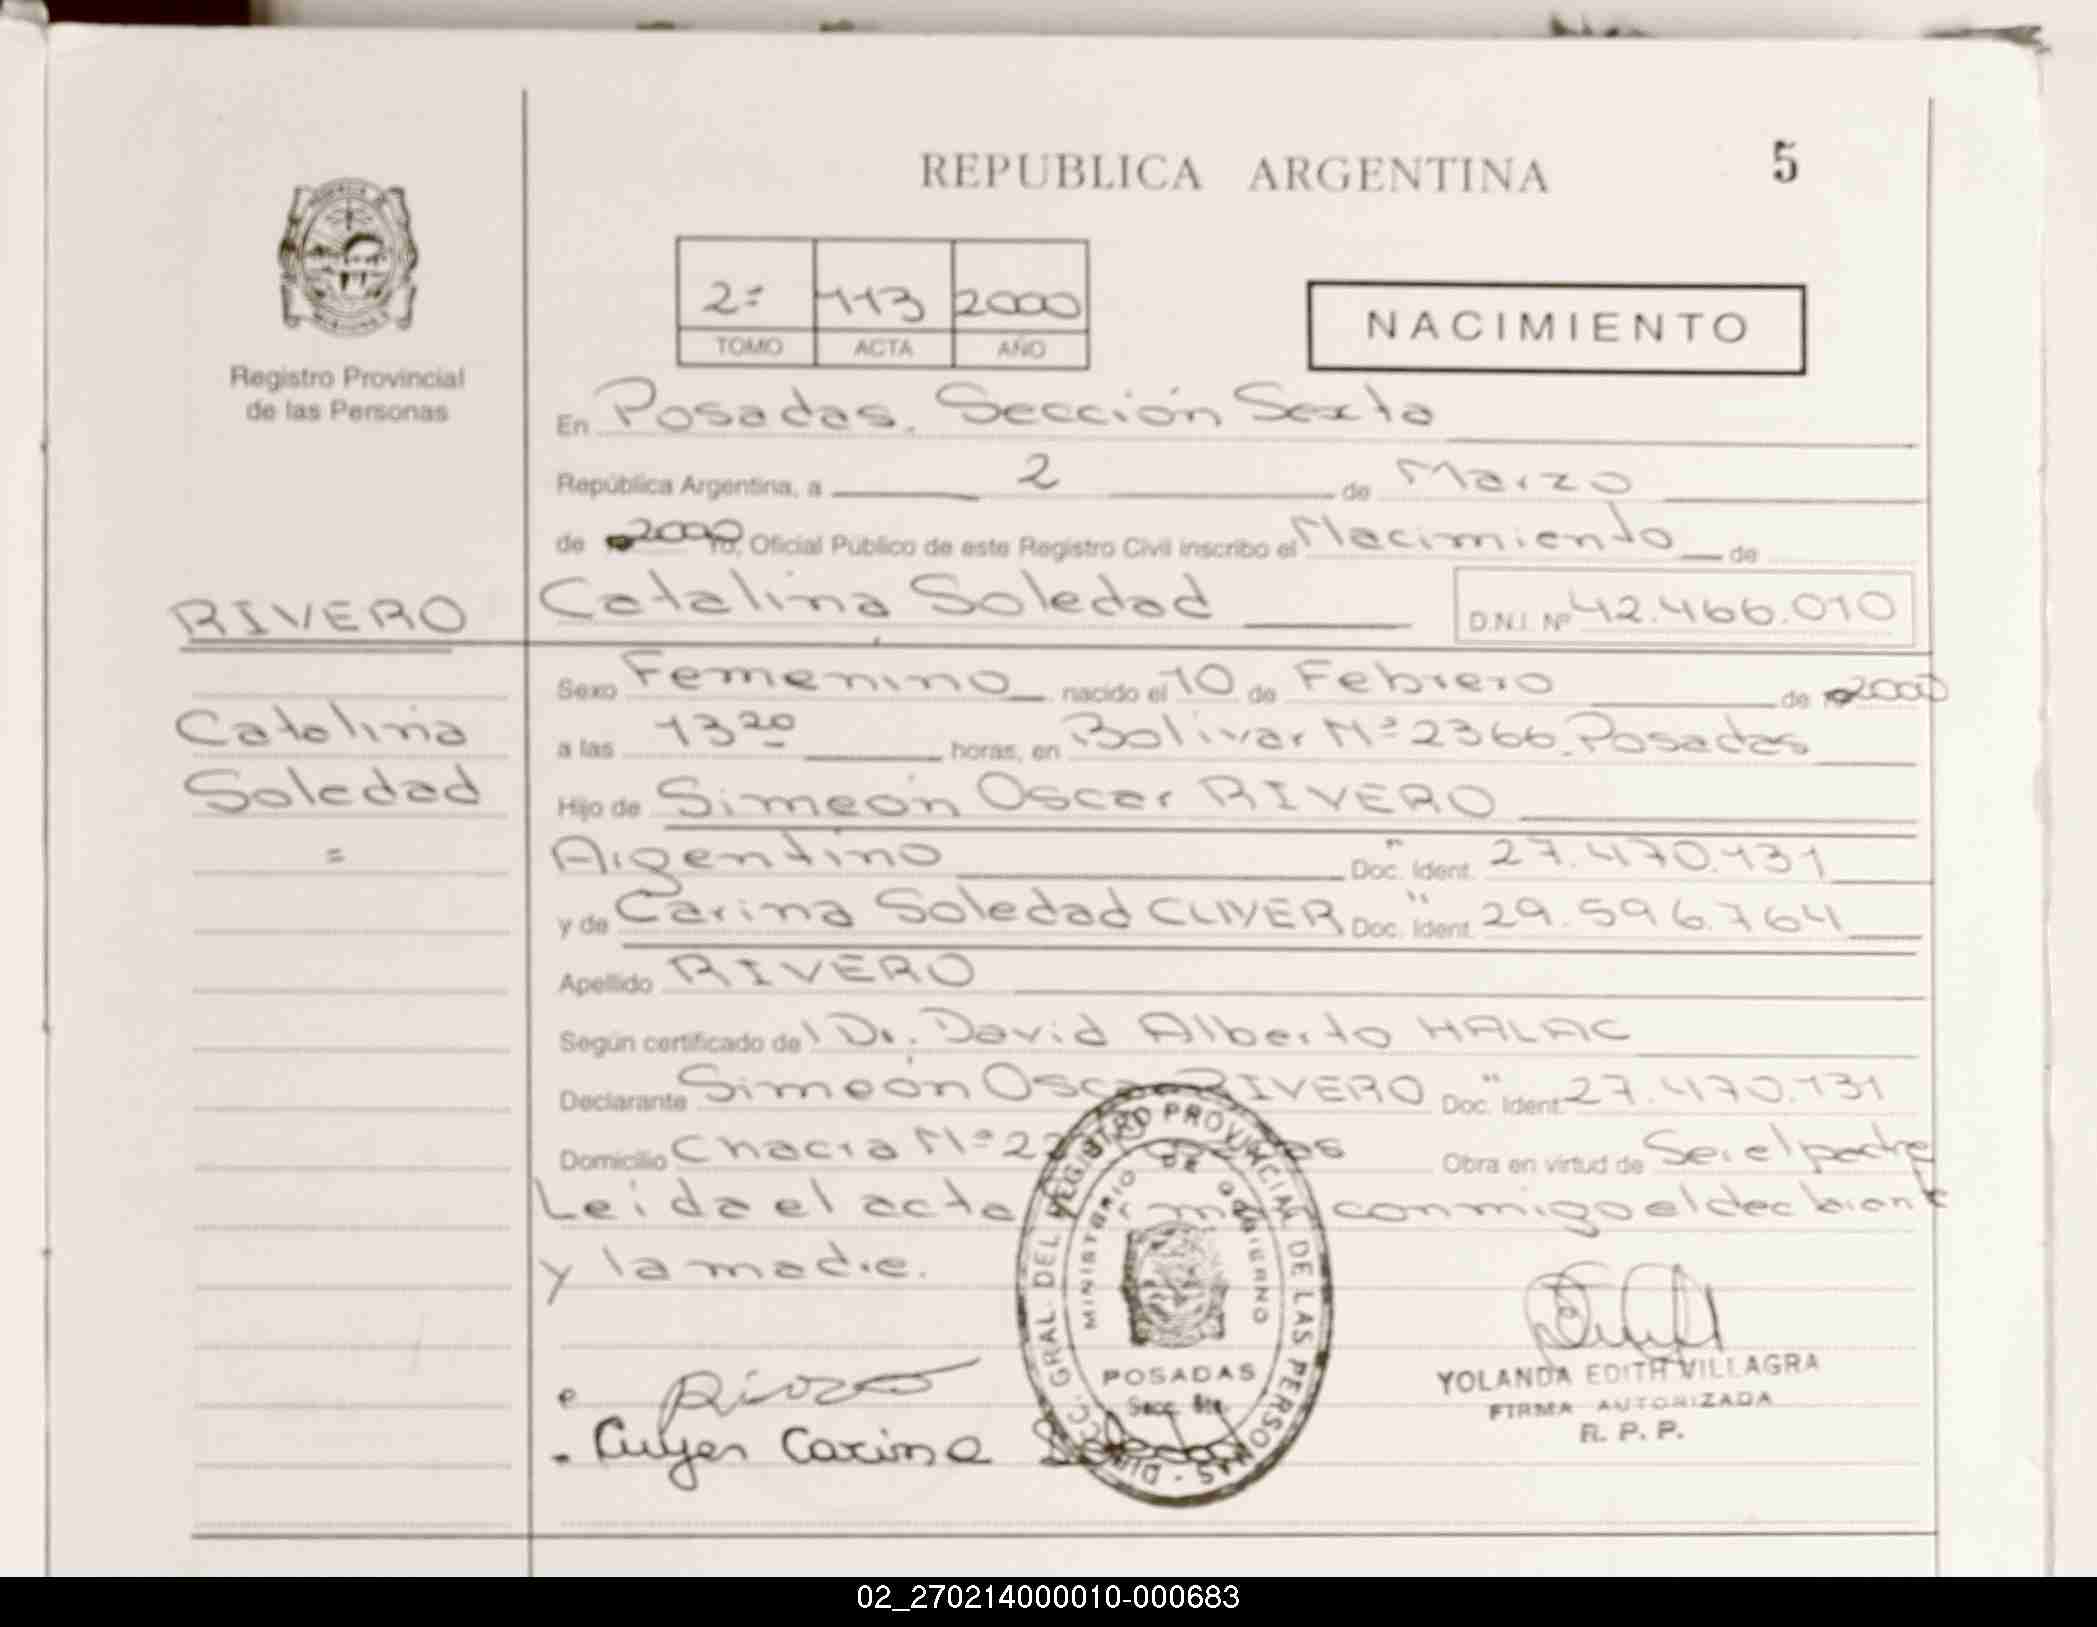 REPUBLICA ARGENTINA
5
Registro Provincial
de las Personas
2º 113 2000
TOMO ACTA AÑO
NACIMIENTO
En Posadas. Sección Sexta
República Argentina, a 2 de Marzo
de 2000 Yo, Oficial Público de este Registro Civil inscribo el Nacimiento de
RIVERO
Catalina Soledad D.N.I. Nº 42.466.010
Sexo Femenino nacido el 10 de Febrero de 2000
Catalina
a las 13 20 horas, en Bolivar Nº 2366. Posadas
Soledad
Hijo de Simeón Oscar RIVERO
=
Argentino Doc. Ident. 27.470.131
y de Carina Soledad Doc. Ident. 29.596.764
Apellido RIVERO
Según certificado del Dr. David Alberto HALAC
Declarante Simeón Oscar RIVERO Doc. Ident. 27.470.131
Domicilio Chacra Nº Obra en virtud de Ser el padre
Leida el acta conmigo el declarante
y la madre.
DIRECC. GRAL. DEL REGISTRO PROVINCIAL DE LAS PERSONAS
MINISTERIO DE GOBIERNO
POSADAS
Secc. 6ta.
Rivero
Carina
YOLANDA EDITH VILLAGRA
FIRMA AUTORIZADA
R. P. P.
02_270214000010-000683